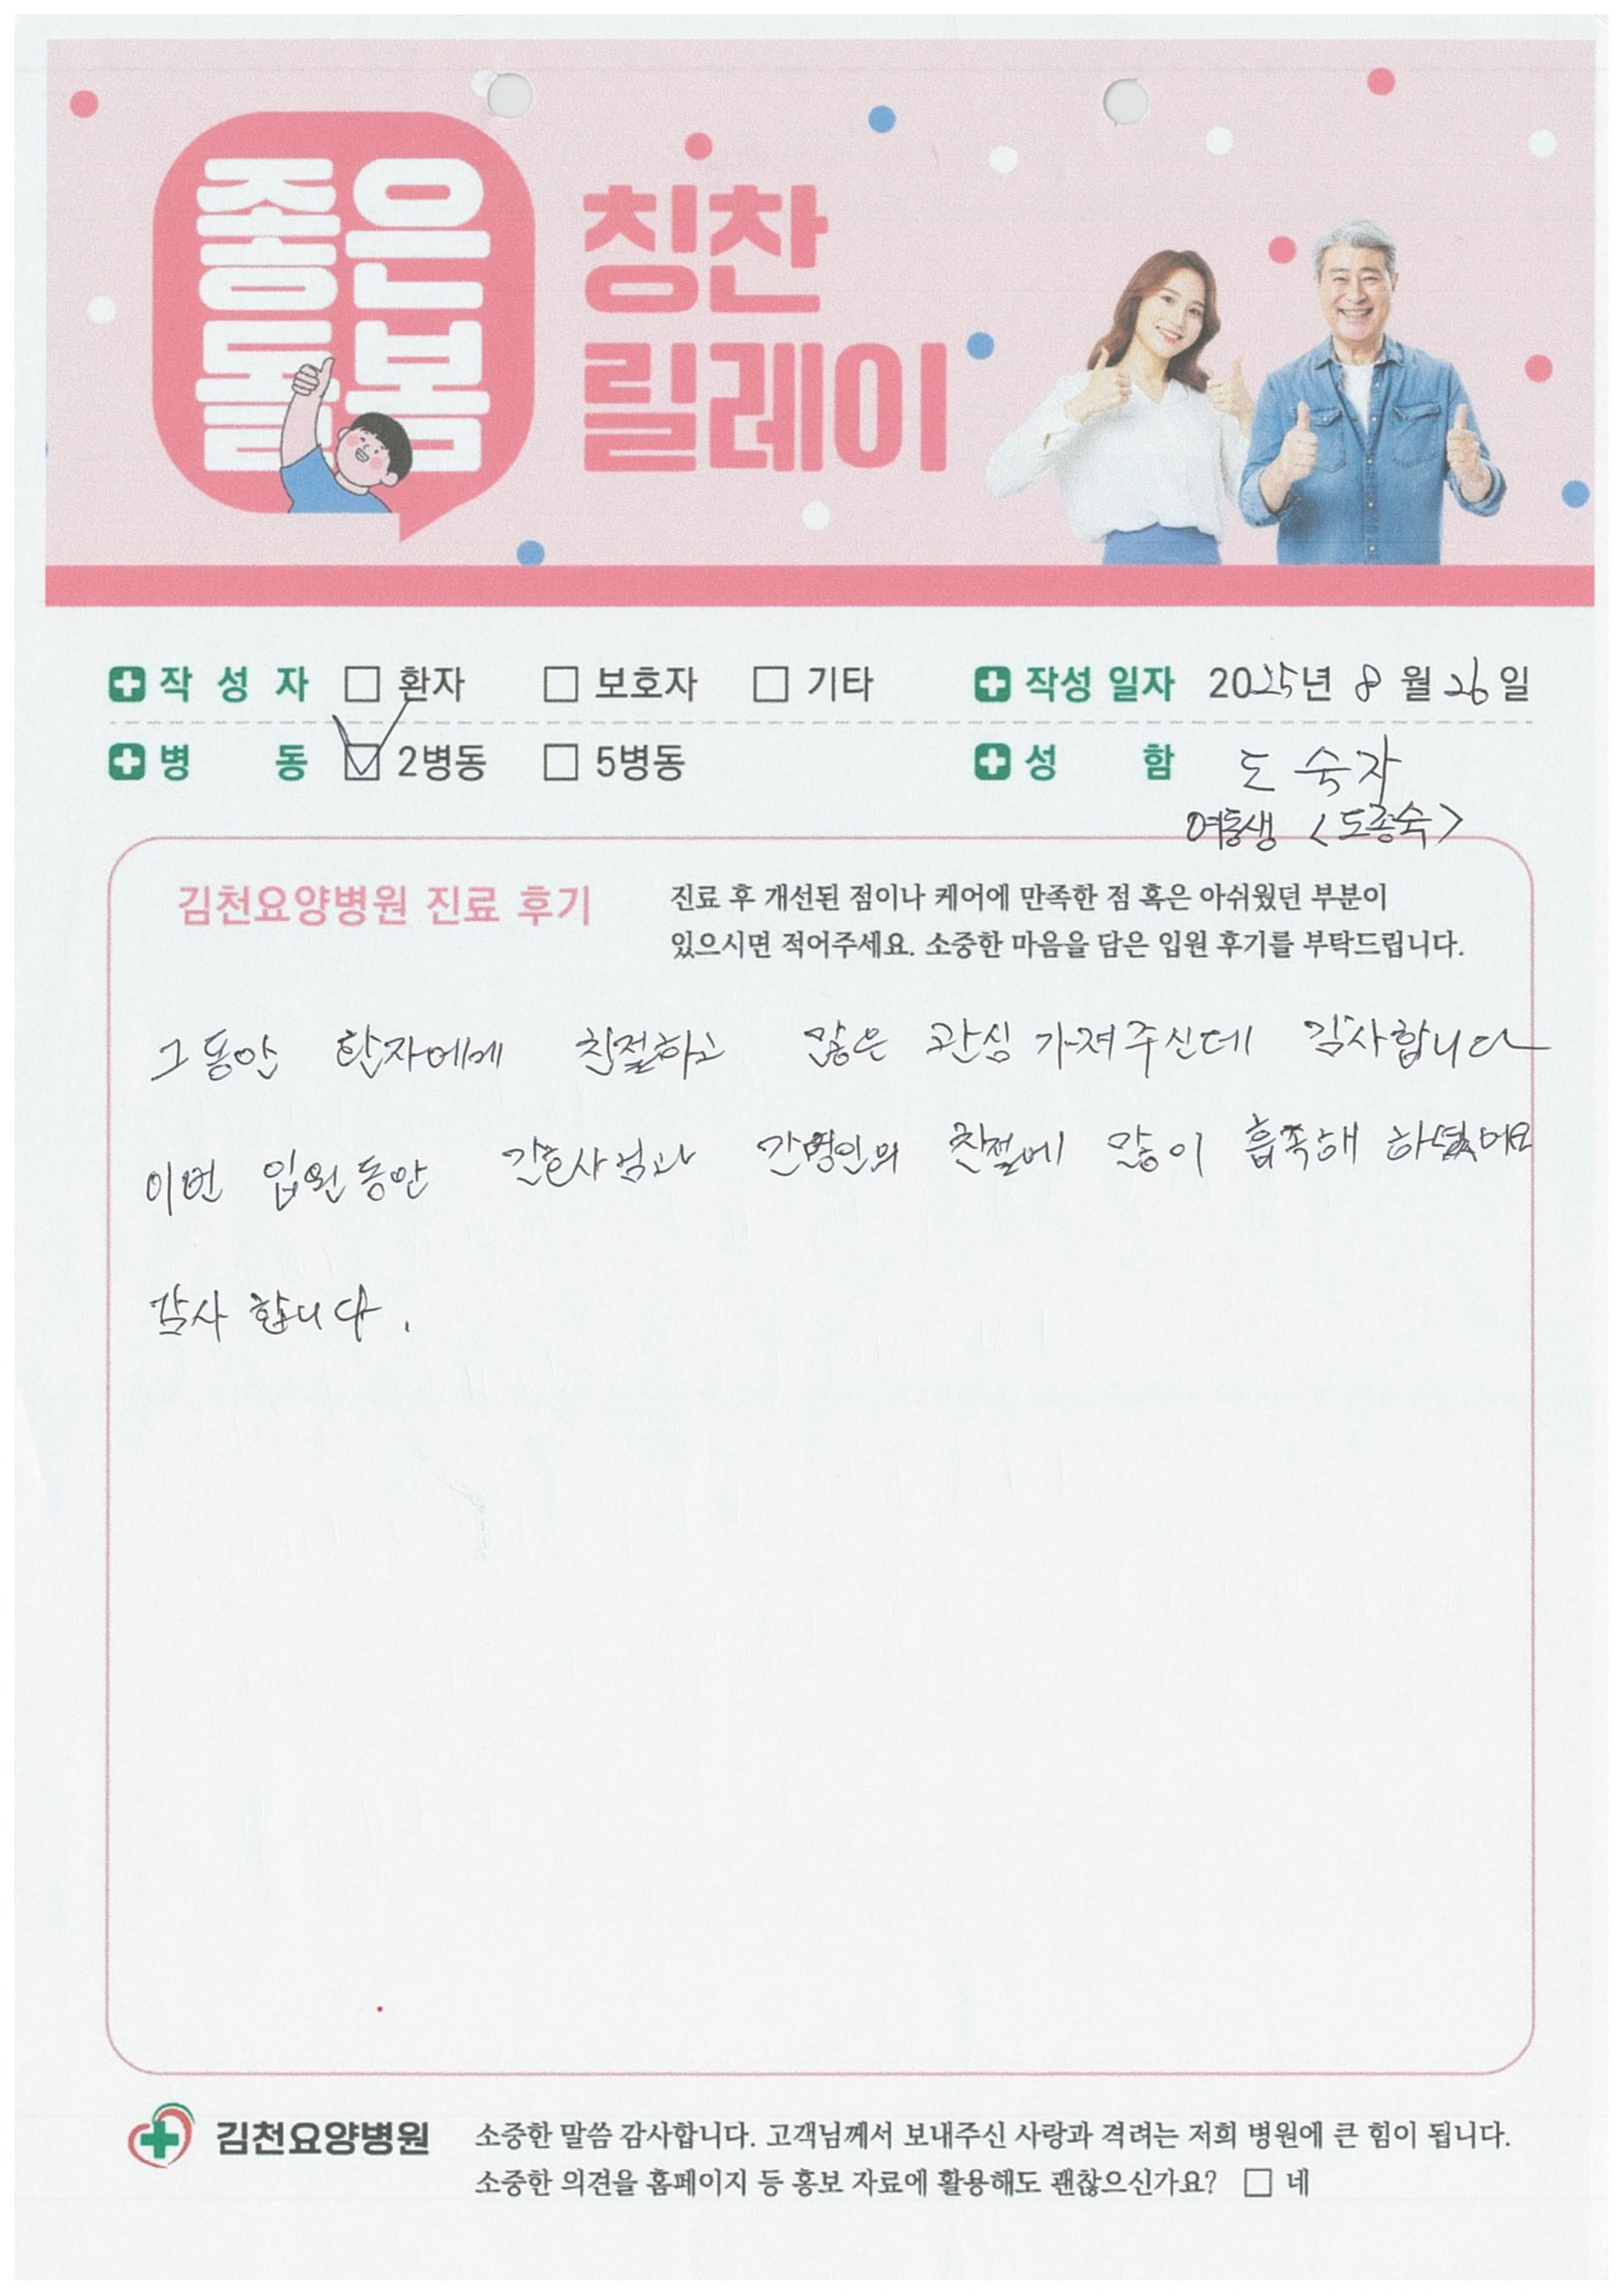 좋은
돌봄
칭찬
릴레이
작 성 자 □ 환자 □ 보호자 □ 기타
작성 일자 2025년 8월 26일
병 동 ☑ 2병동 □ 5병동
성 함 도숙자
여동생 <도종숙>
김천요양병원 진료 후기
진료 후 개선된 점이나 케어에 만족한 점 혹은 아쉬웠던 부분이
있으시면 적어주세요. 소중한 마음을 담은 입원 후기를 부탁드립니다.
그동안 환자에게 친절하고 많은 관심 가져주신데 감사합니다
이번 입원동안 간호사님과 간병인의 친절에 많이 흡족해 하셨어요
감사 합니다.
김천요양병원
소중한 말씀 감사합니다. 고객님께서 보내주신 사랑과 격려는 저희 병원에 큰 힘이 됩니다.
소중한 의견을 홈페이지 등 홍보 자료에 활용해도 괜찮으신가요? □ 네